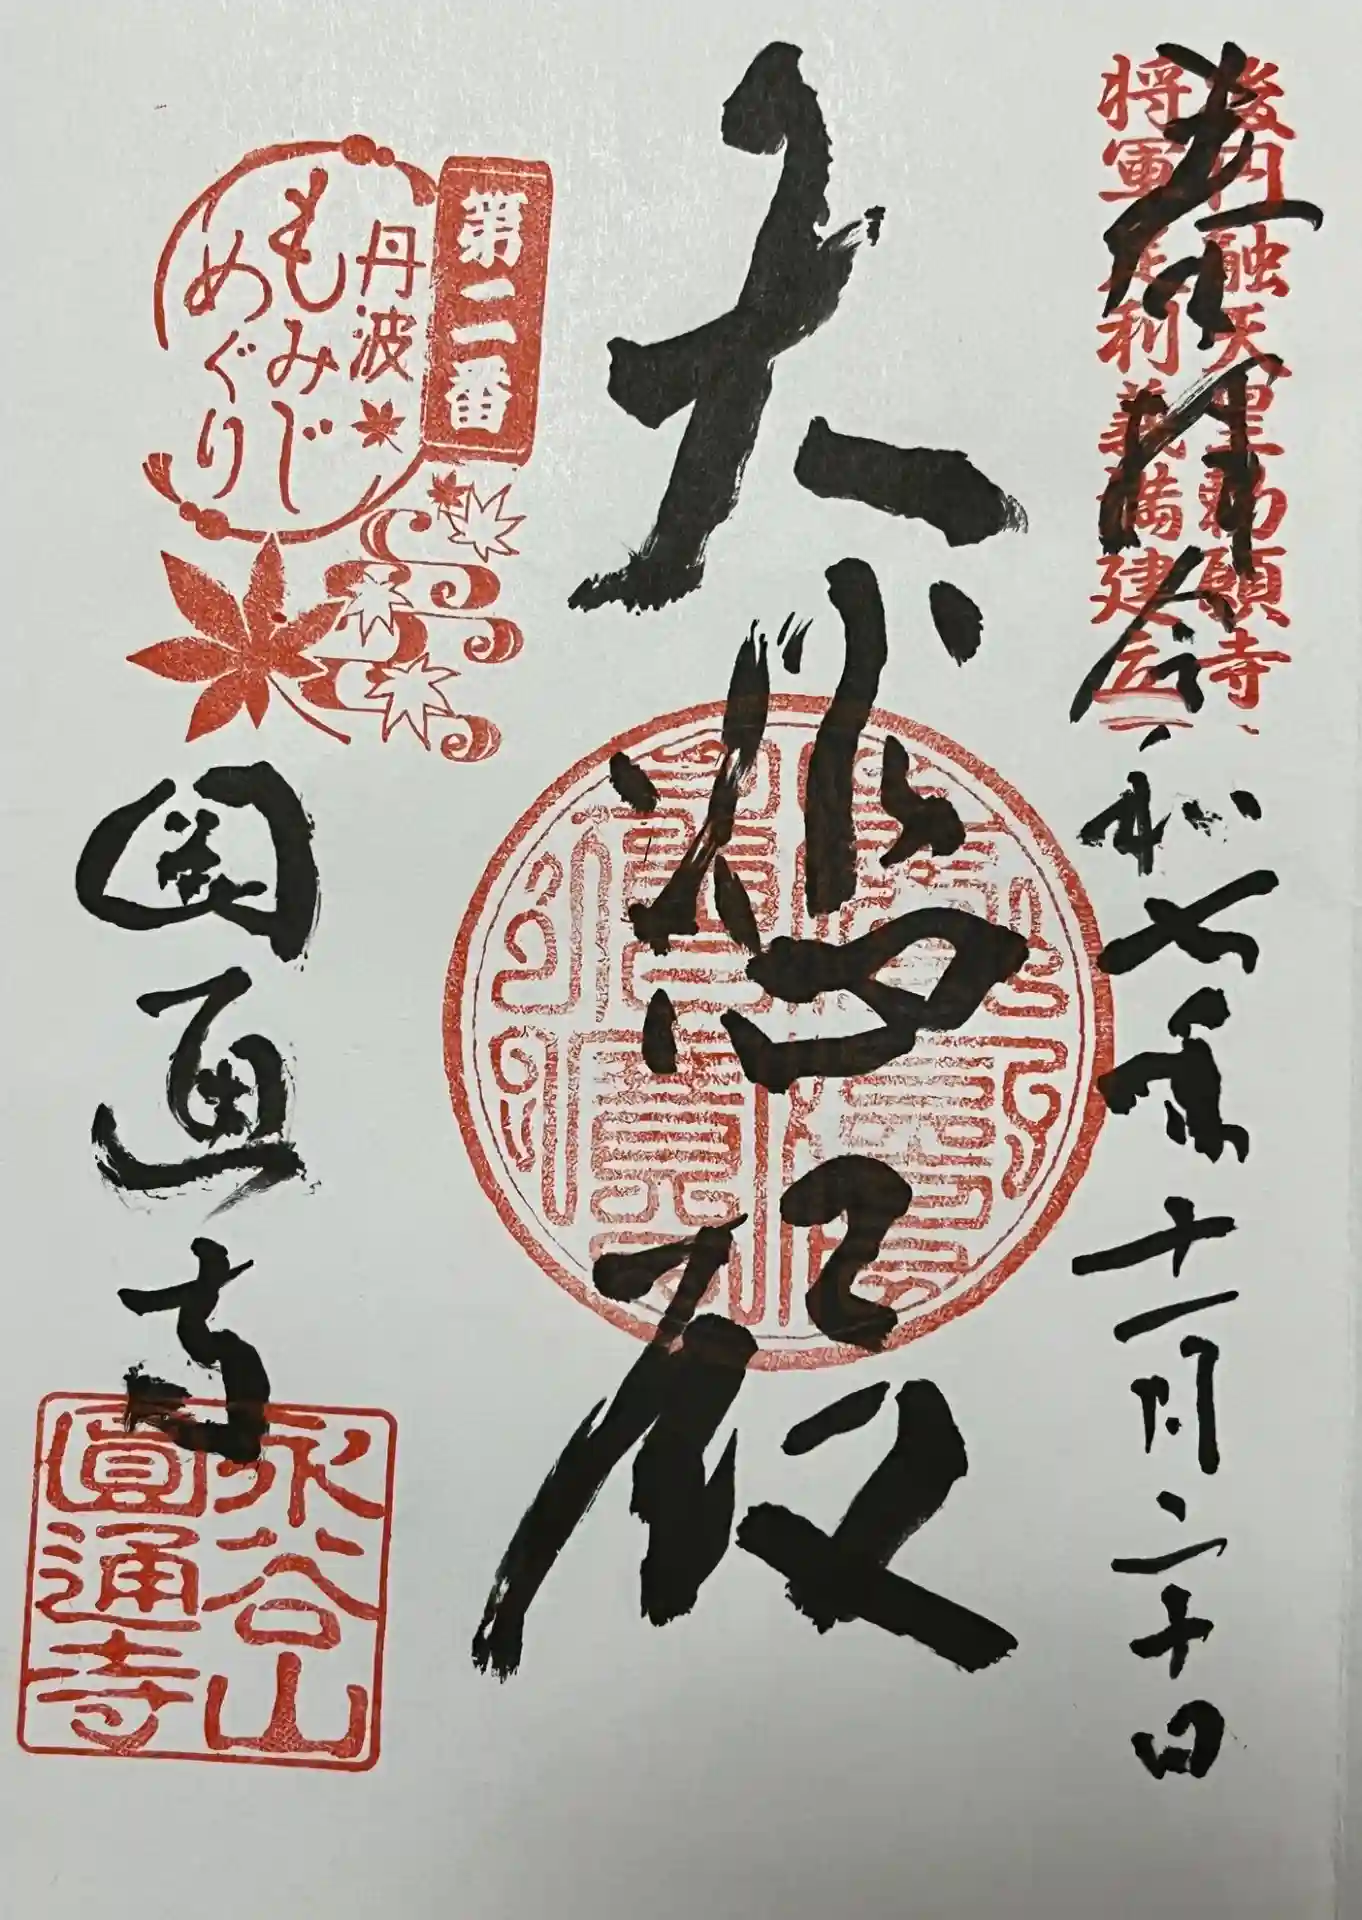 後円融天皇勅願寺
将軍足利義満建立
奉拝
令和七年十一月二十日
大悲殿
第二番
丹波
もみじ
めぐり
圓通寺
永谷山
圓通寺